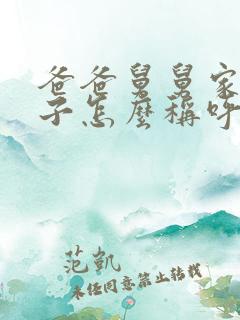 爸爸舅舅家
子怎麼稱呼
范凱
未經同意禁止轉載